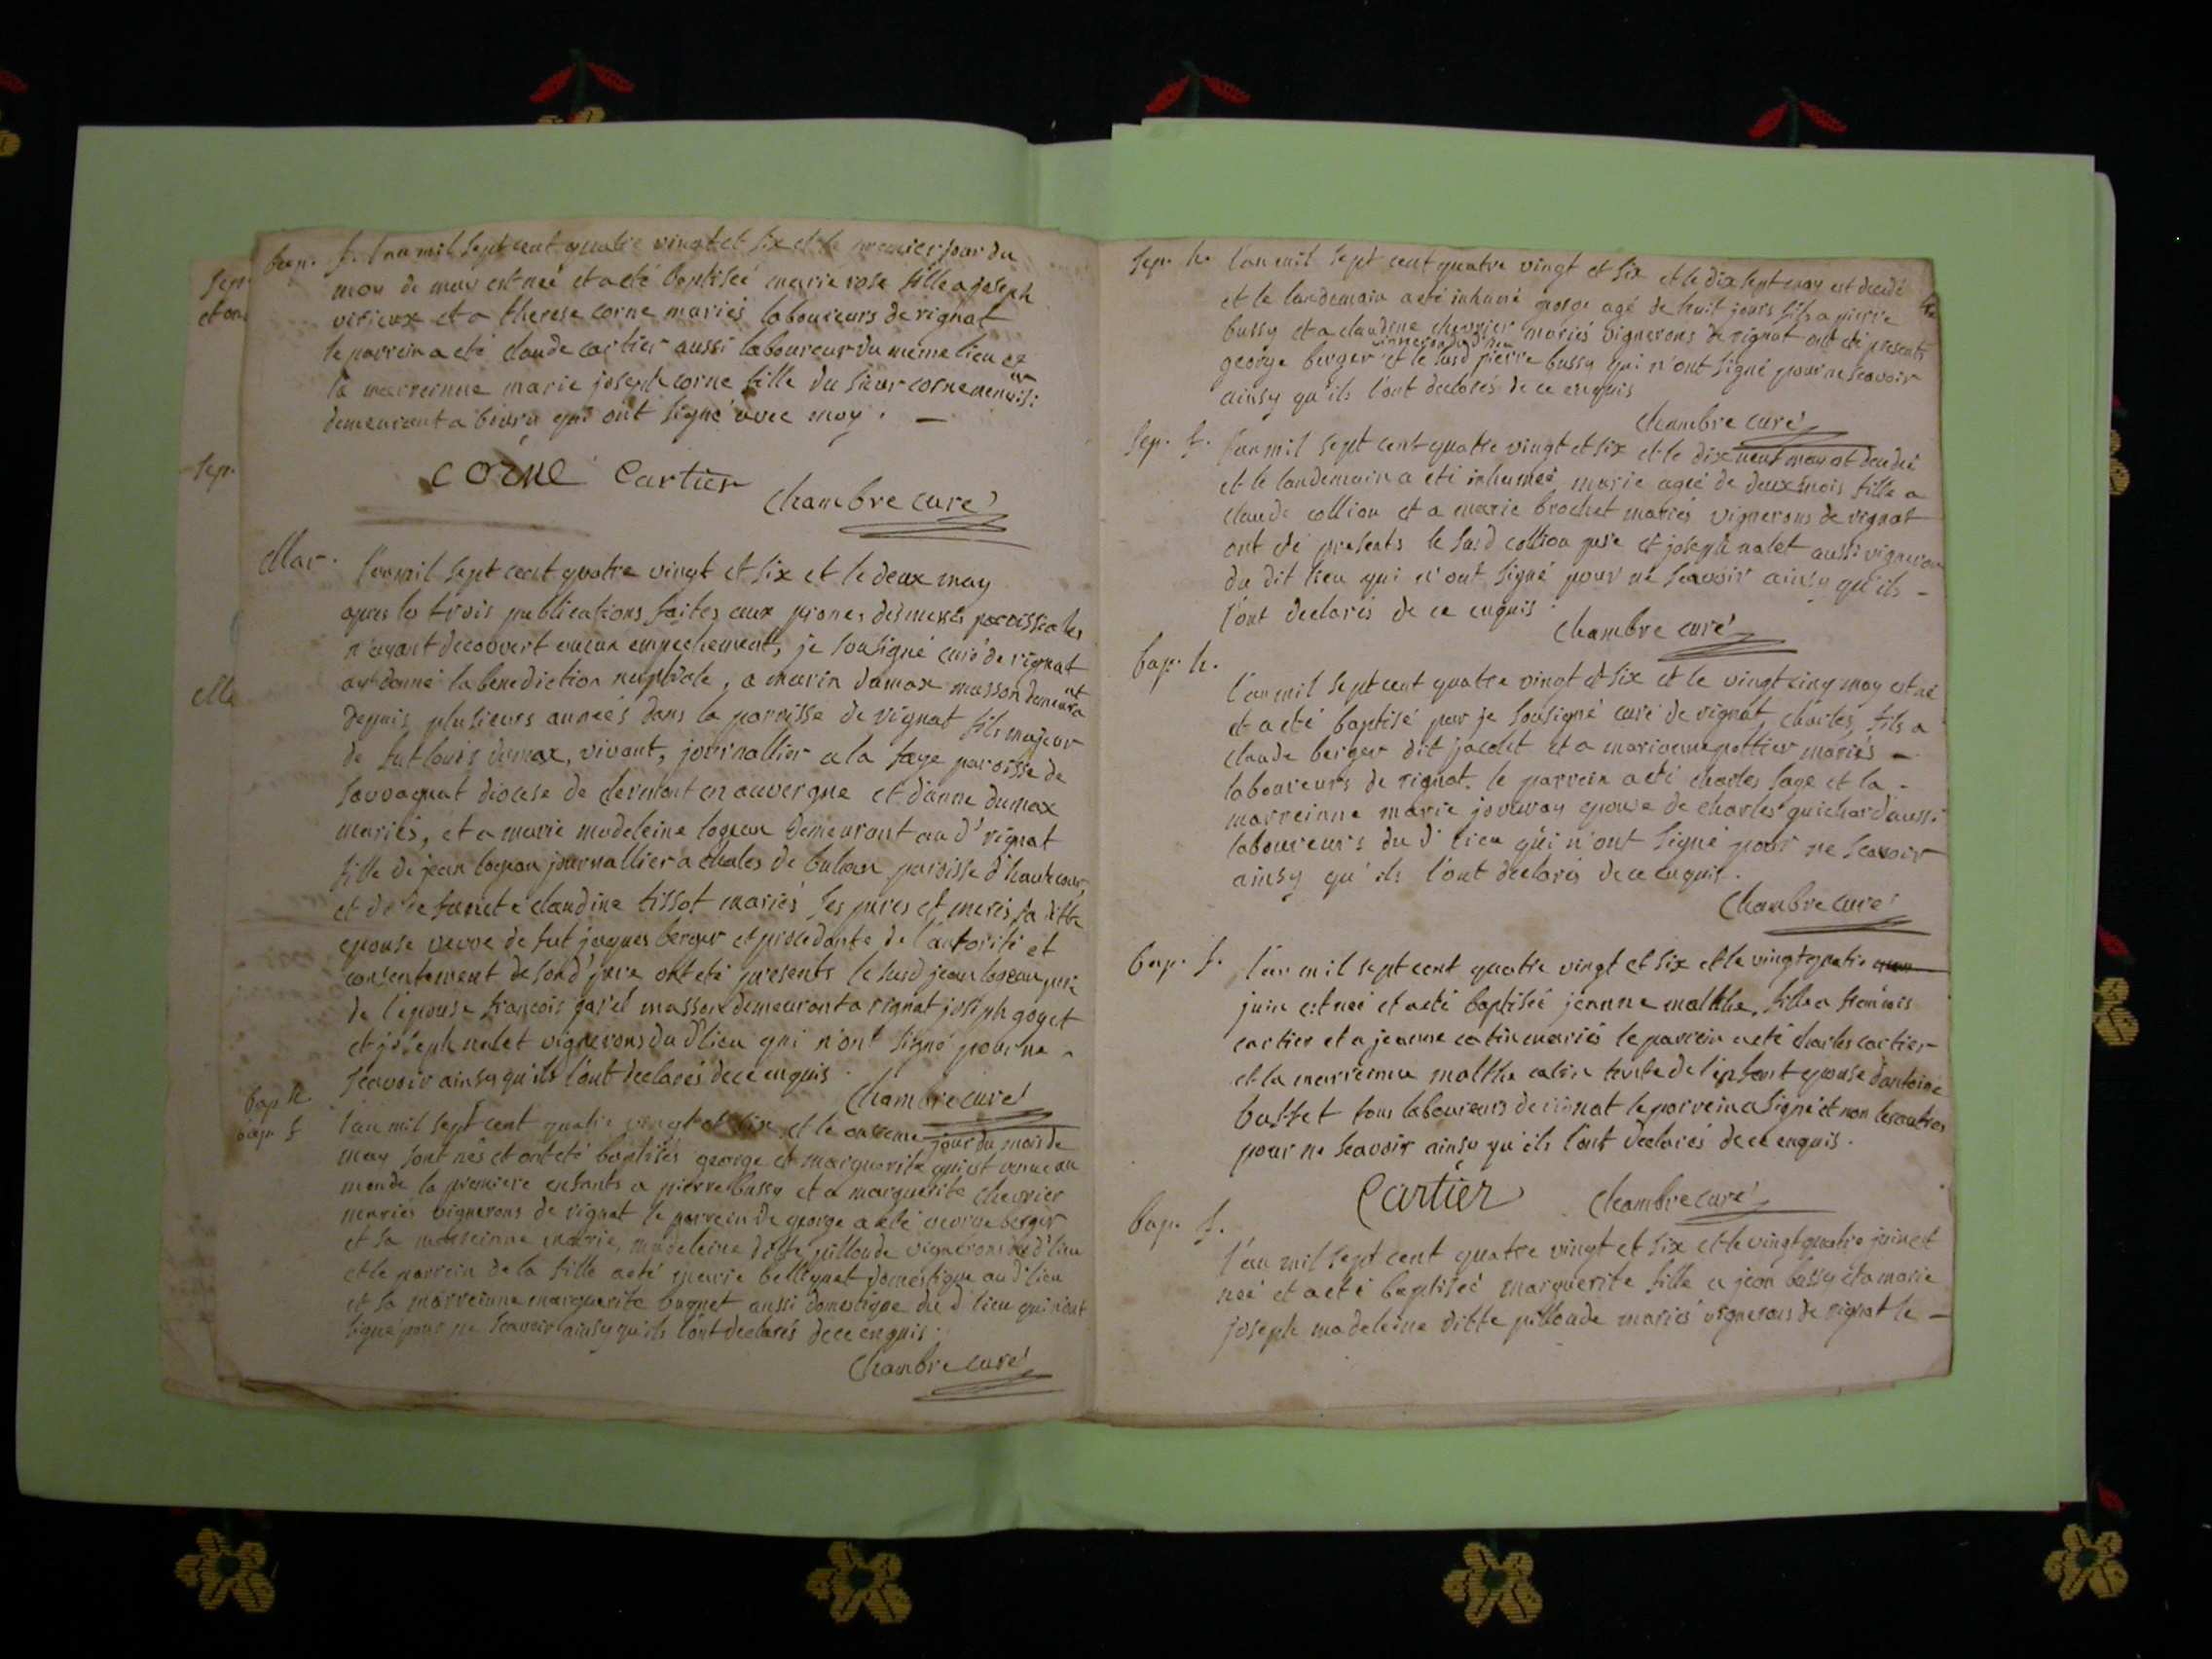 Sep.
Sep.
bap. f. l'an mil sept cent quatre vingt et six et le premier jour du
moy de may est neé et a eté baptisée marie rose fille a joseph
virieux et a therese corne mariés laboureurs de rignat
le parrein a eté claude cartier aussi laboureur du meme lieu et
la marreinne marie joseph corne fille du sieur corne
demeurant a qui ont signé avec moy.
corne Cartier
Chambre curé
Mar. l'an mil sept cent quatre vingt et six et le deux may
apres les trois publications faites aux prones des messes paroissiales
n'ayant decouvert aucun empechement, je sousigné curé de rignat
ay donné la benediction nuptiale, a marin dumax masson demeurant
depuis plusieurs années dans la paroisse de rignat fils majeur
de fut louis dumax, vivant, journallier a la faye paroisse de
diocese de clermont en auvergne et d'anne dumax
mariés, et a marie madeleine logean demeurant au d' rignat
fille de jean logean journallier a chales de paroisse d'hautecour,
et de defuncte claudine tissot mariés ses peres et meres la ditte
epouse veuve de fut jacques berger et procedante de l'autorité et
consentement de son d' pere ont eté presents le susd jean logean pere
de l'epouse françois masson demeurant a rignat joseph goyet
et joseph nalet vignerons du d' lieu qui n'ont signé pour ne
scavoir ainsy qu'ils l'ont declarés de ce enquis.
Chambre curé
bap. h.
bap. f. l'an mil sept cent quatre vingt et six et le onzieme jour du mois de
may sont nés et ont eté baptisés george et marguerite qui est venue au
monde la premiere enfants a pierre bussy et a marguerite chevrier
mariés vignerons de rignat le parrein de george a eté george berger
et sa marreinne marie madeleine ditte pilloude vignerons du d' lieu
et le parrein de la fille a eté domestique au d' lieu
et sa marreinne marguerite aussi domestique du d' lieu qui n'ont
signé pour ne scavoir ainsy qu'ils l'ont declarés de ce enquis.
Chambre curé
Sep. h. l'an mil sept cent quatre vingt et six et le dix sept may est decedé
et le landemain a eté inhumé george agé de huit jours fils a pierre
bussy et a claudine chevrier mariés vignerons de rignat ont eté presents
george berger vigneron du d' lieu et le susd pierre bussy qui n'ont signé pour ne scavoir
ainsy qu'ils l'ont declarés de ce enquis
Chambre curé
Sep. f. l'an mil sept cent quatre vingt et six et le dix neuf may est decedeé
et le landemain a eté inhumeé marie ageé de deux mois fille a
claude collion et a marie brochet mariés vignerons de rignat
ont eté presents le susd collion pere et joseph nalet aussi vigneron
du dit lieu qui n'ont signé pour ne scavoir ainsy qu'ils
l'ont declarés de ce enquis.
Chambre curé
bap. h. l'an mil sept cent quatre vingt et six et le vingt cinq may est né
et a eté baptisé par je sousigné curé de rignat, charles, fils a
claude berger dit jacolet et a marianne pottier mariés
laboureurs de rignat. le parrein a eté charles sage et la
marreinne marie jouvray epouse de charles guichard aussi
laboureurs du d' lieu qui n'ont signé pour ne scavoir
ainsy qu'ils l'ont declarés de ce enquis.
Chambre curé
bap. f. l'an mil sept cent quatre vingt et six et le vingt quatre may
juin est neé et a eté baptiseé jeanne malthe, fille a francois
cartier et a jeanne catin mariés le parrein a eté charles cartier
et la marreinne malthe catin tante de l'enfant epouse d'antoine
basset tous laboureurs de rignat le parrein a signé et non les autres
pour ne scavoir ainsy qu'ils l'ont declarés de ce enquis.
Cartier Chambre curé
bap. f. l'an mil sept cent quatre vingt et six et le vingt quatre juin est
neé et a eté baptiseé marguerite fille a jean bussy et a marie
joseph madeleine ditte pilloude mariés vignerons de rignat le